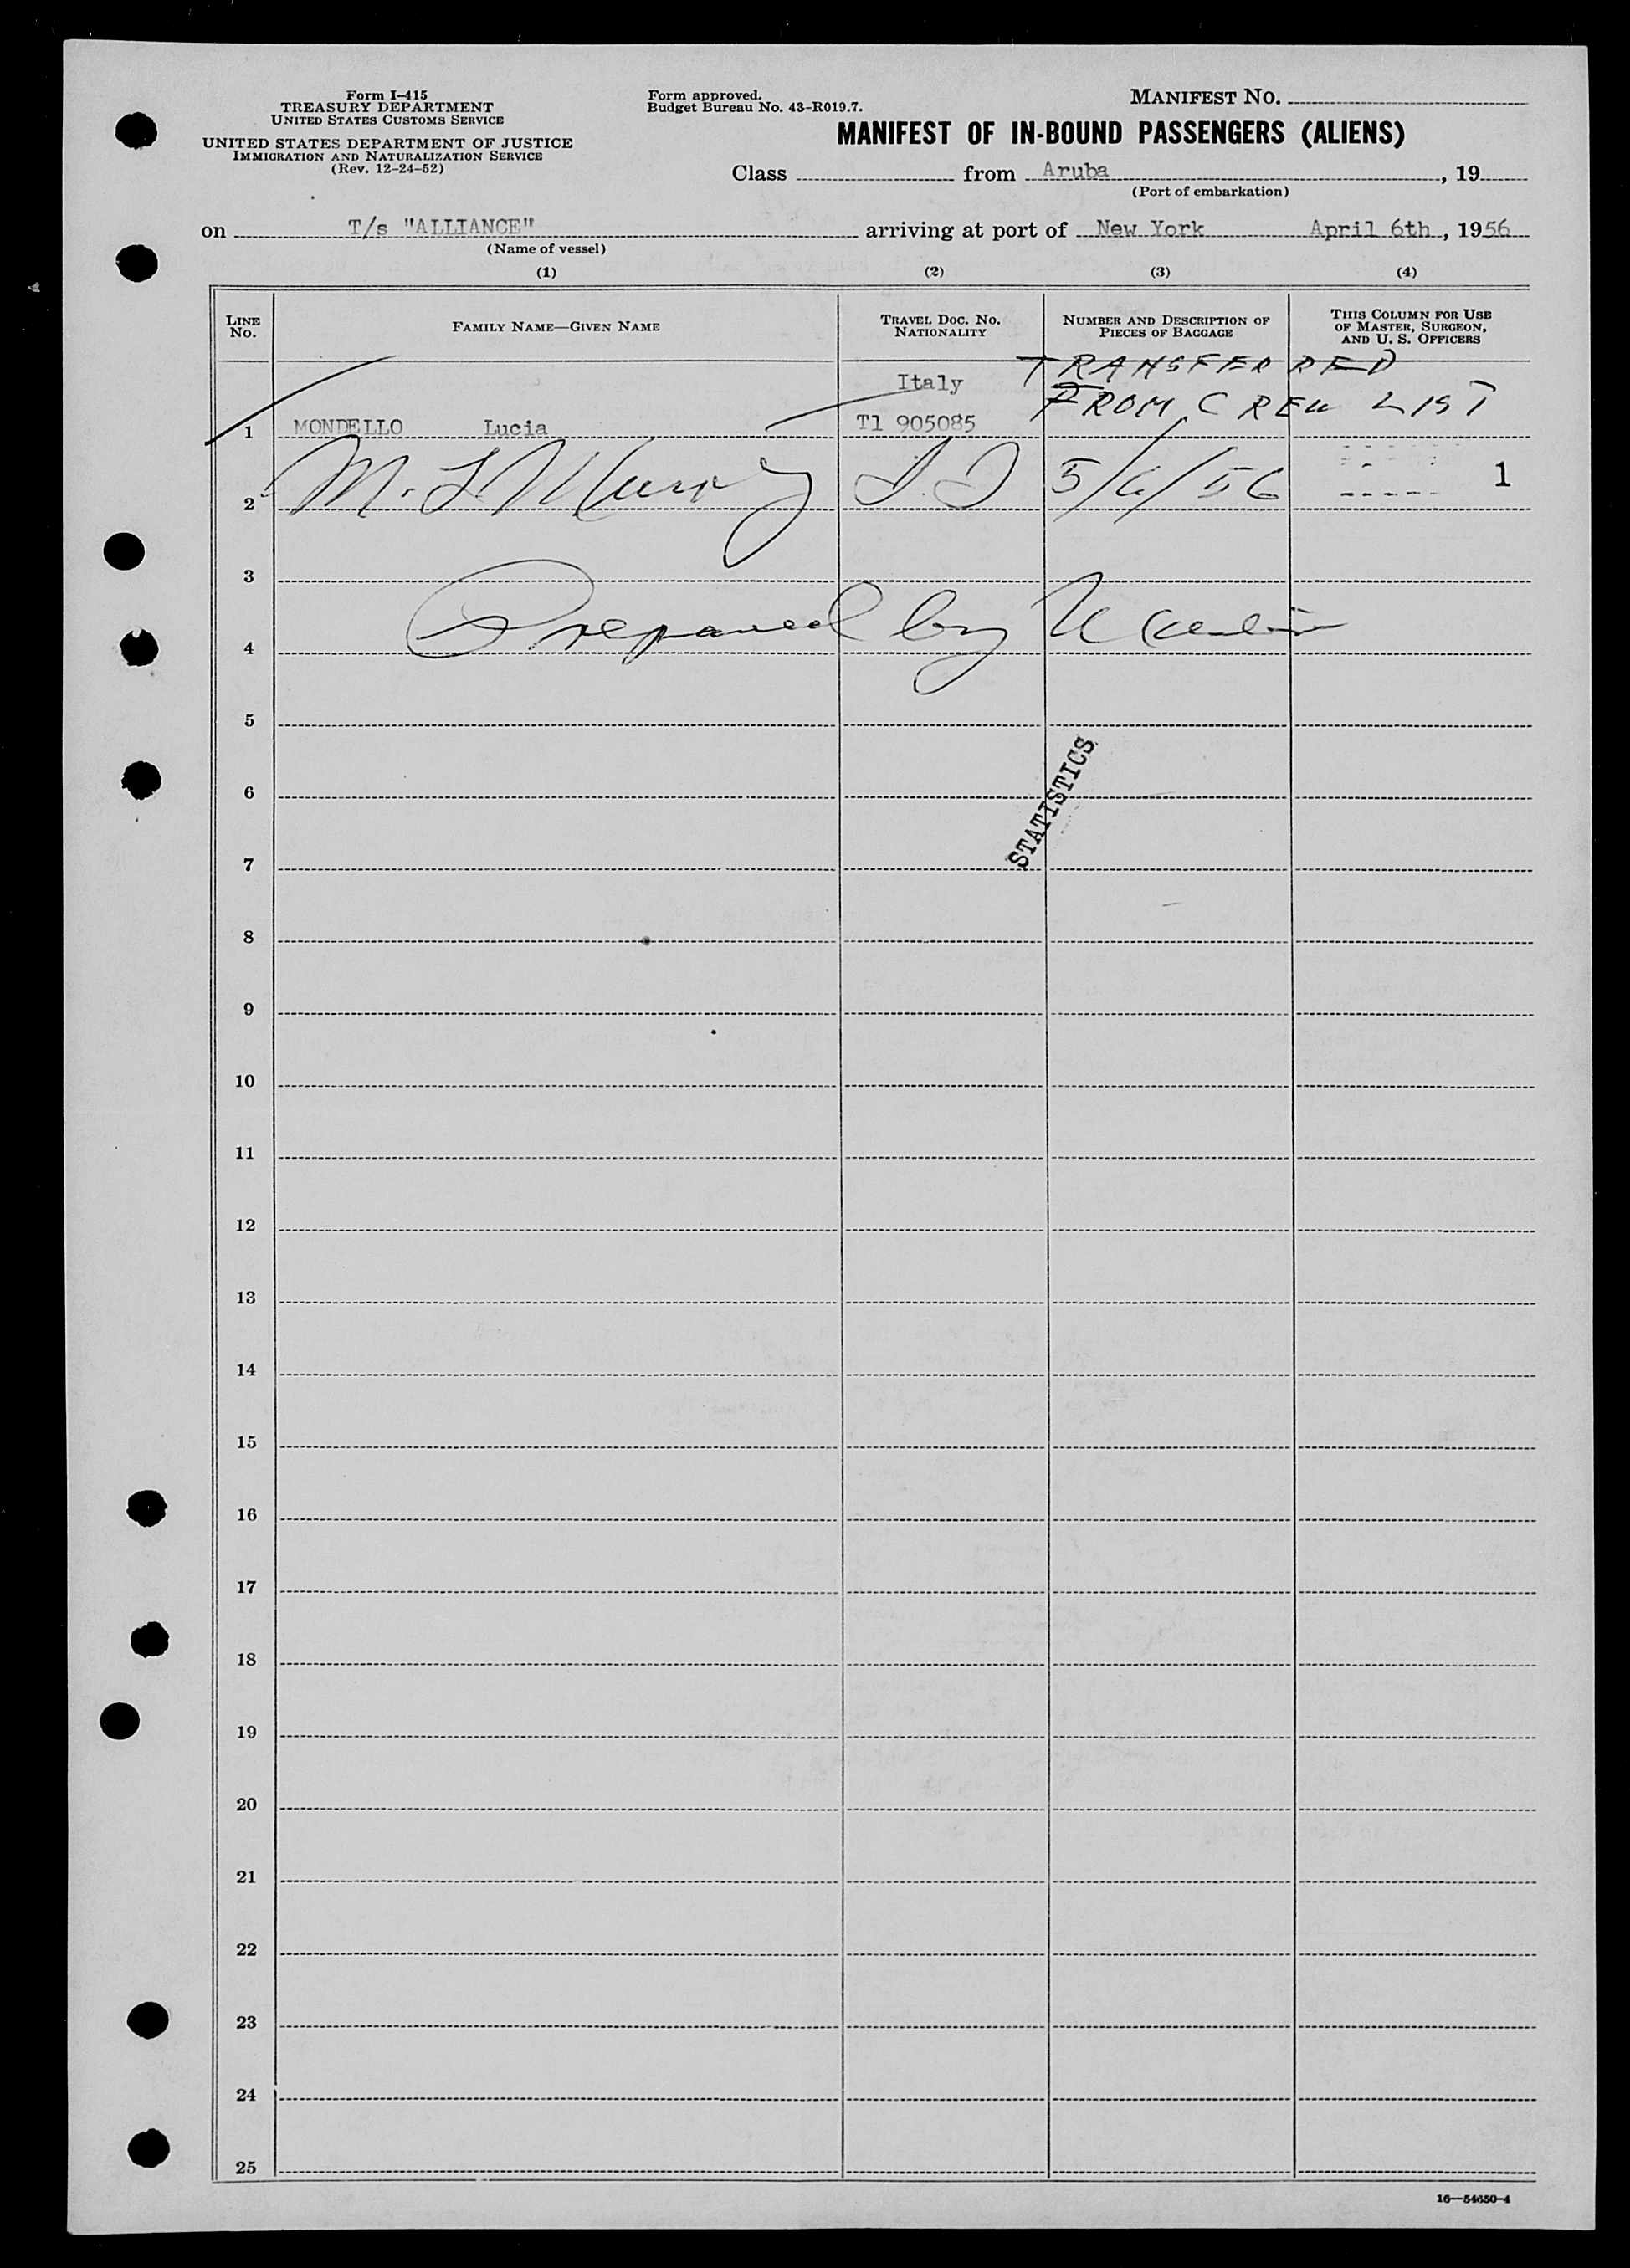 Form I-415
TREASURY DEPARTMENT
UNITED STATES CUSTOMS SERVICE
UNITED STATES DEPARTMENT OF JUSTICE
IMMIGRATION AND NATURALIZATION SERVICE
(Rev. 12-24-52)
Form approved.
Budget Bureau No. 43-R019.7.
MANIFEST NO.
MANIFEST OF IN-BOUND PASSENGERS (ALIENS)
Class from Aruba, 19
(Port of embarkation)
on T/s "ALLIANCE" arriving at port of New York April 6th, 1956
(Name of vessel)
(1) (2) (3) (4)
LINE No. FAMILY NAME—GIVEN NAME TRAVEL DOC. NO. NATIONALITY NUMBER AND DESCRIPTION OF PIECES OF BAGGAGE THIS COLUMN FOR USE OF MASTER, SURGEON, AND U. S. OFFICERS
TRANSFERRED
Italy
FROM CREW LIST
1 MONDELLO Lucia T1 905085
2 M. L. 5/6/56 1
3
4 Prepared by
5
STATISTICS
6
7
8
9
10
11
12
13
14
15
16
17
18
19
20
21
22
23
24
25
16—54650-4